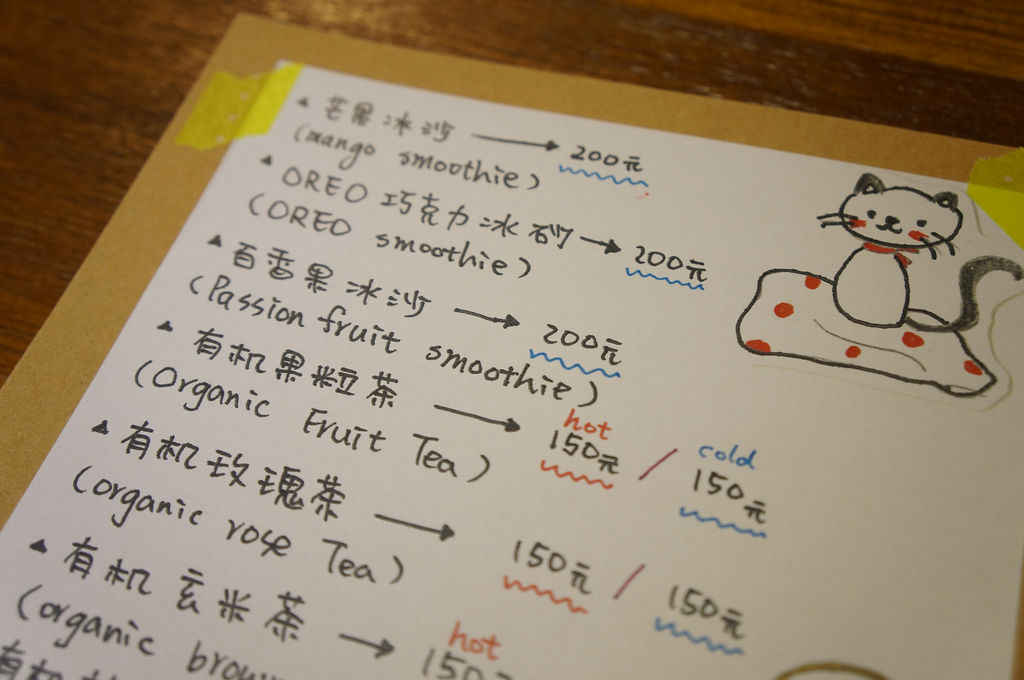 ▲ 芒果冰沙 → 200元
(mango smoothie)
▲ OREO 巧克力冰砂 → 200元
(OREO smoothie)
▲ 百香果冰沙 → 200元
(Passion fruit smoothie)
▲ 有机果粒茶 → hot 150元 / cold 150元
(Organic Fruit Tea)
▲ 有机玫瑰茶 → 150元 / 150元
(organic rose Tea)
▲ 有机玄米茶 → hot 150元
(organic brow
有机